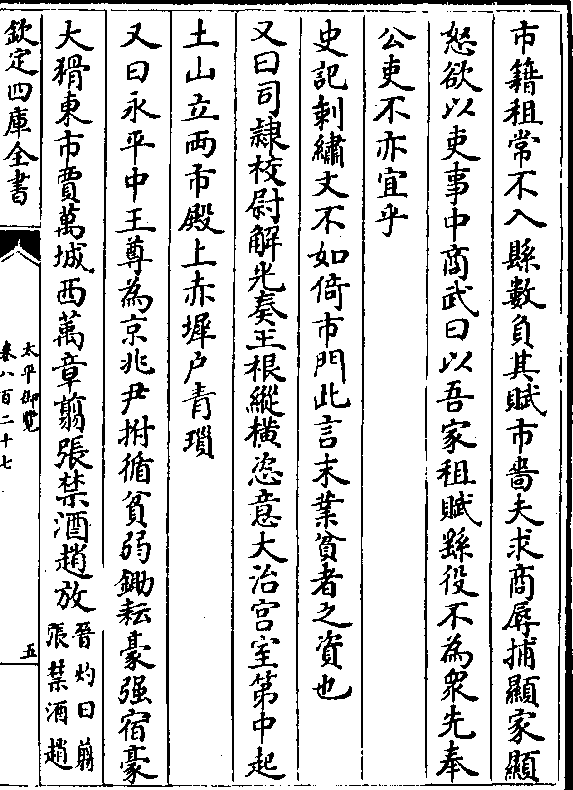 市籍租常不入縣數負其賦市嗇夫求商辱捕顯家顯
怒欲以吏事中商武曰以吾家租賦繇役不為衆先奉
公吏不亦宜乎
史記刺繡文不如倚市門此言末業貧者之資也
又曰司隷校尉解光奏王根縱橫恣意大治宫室第中起
土山立兩市殿上赤墀户青瑣
又曰永平中王尊為京兆尹拊循貧弱鋤耘豪强宿豪
大猾東市賈萬城西萬章翦張禁酒趙放
晉灼曰翦
張禁酒趙
欽定四庫全書
太平御覽
卷八百二十七
五